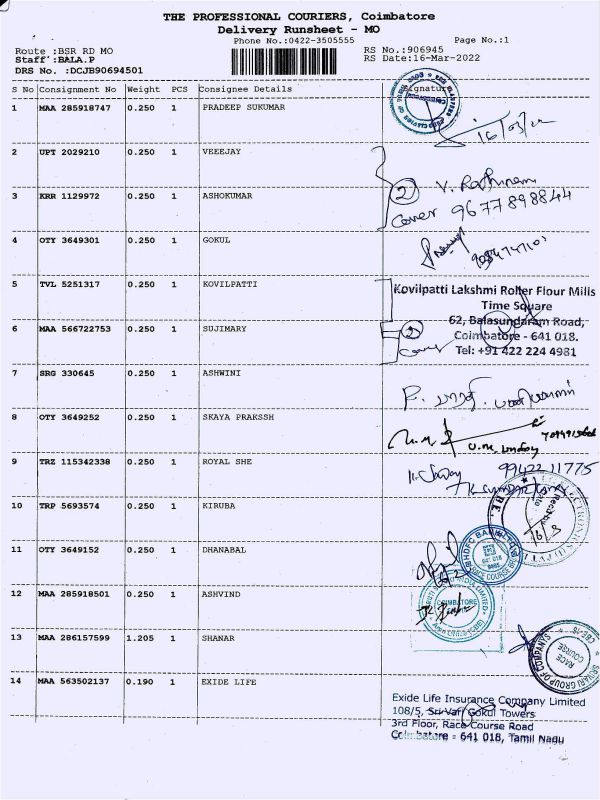 THE PROFESSIONAL COURIERS, Coimbatore
Delivery Runsheet - MO
Phone No.:0422-3505555 Page No.:1
Route :BSR RD MO RS No.:906945
Staff :BALA.P RS Date:16-Mar-2022
DRS No. :DCJB90694501
S No Consignment No Weight PCS Consignee Details Signature
1 MAA 285918747 0.250 1 PRADEEP SUKUMAR
16/03/22
2 UPT 2029210 0.250 1 VEEEJAY
2 V. Rathinam
3 KRR 1129972 0.250 1 ASHOKUMAR
Cover 9677898844
4 OTY 3649301 0.250 1 GOKUL
5 TVL 5251317 0.250 1 KOVILPATTI
Kovilpatti Lakshmi Roller Flour Mills
Time Square
62, Balasundaram Road,
6 MAA 566722753 0.250 1 SUJIMARY
2 Coimbatore - 641 018.
Cover Tel: +91 422 224 4981
7 SRG 330645 0.250 1 ASHWINI
8 OTY 3649252 0.250 1 SKAYA PRAKSSH
9 TRZ 115342338 0.250 1 ROYAL SHE
9942211775
10 TRP 5693574 0.250 1 KIRUBA
11 OTY 3649152 0.250 1 DHANABAL
HDFC BANK LTD
RACE COURSE
12 MAA 285918501 0.250 1 ASHVIND
COIMBATORE
13 MAA 286157599 1.205 1 SHANAR
GROUP OF COMPANYS
RACE
COURSE
14 MAA 563502137 0.190 1 EXIDE LIFE
Exide Life Insurance Company Limited
108/5, Sri Vari Gokul Towers
3rd Floor, Race Course Road
Coimbatore - 641 018, Tamil Nadu